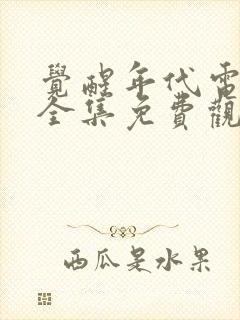 覺醒年代電
全集免費觀
西瓜是水果